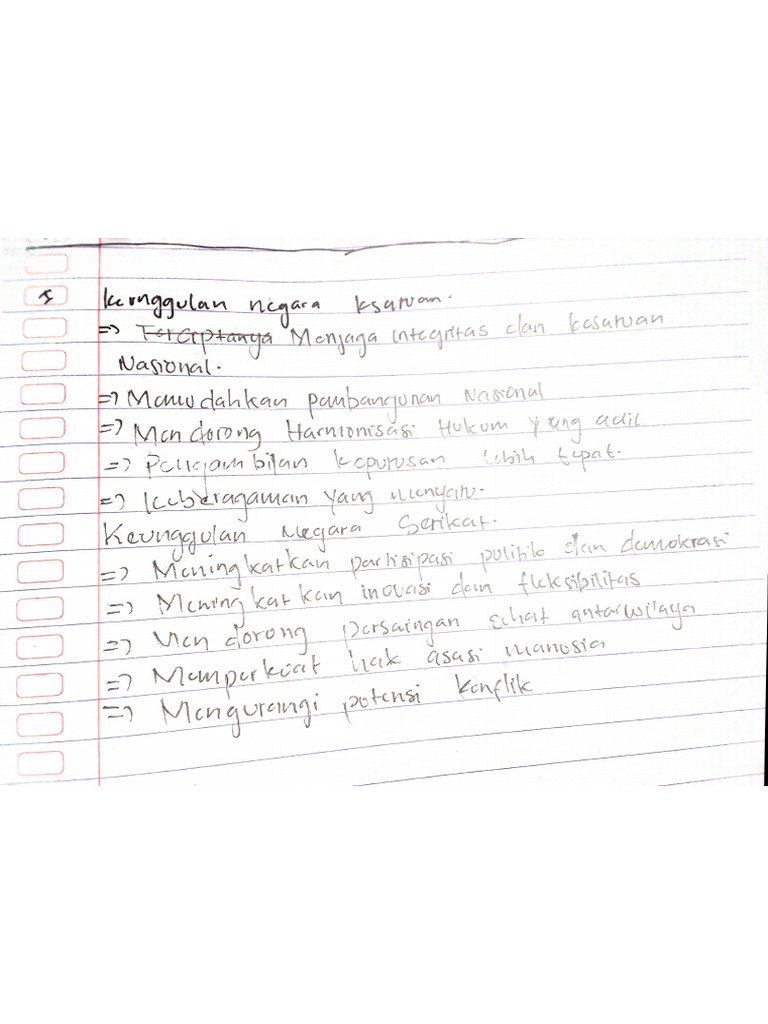 5 keunggulan negara ksatuan.
=> Terciptanya Menjaga integritas dan kesatuan
Nasional.
=> Memudahkan pembangunan Nasional
=> Mendorong Harmonisasi Hukum yang adil
=> Pengambilan keputusan lebih tepat.
=> keberagaman yang menyatu.
Keunggulan Negara Serikat.
=> Meningkatkan partisipasi politik dan demokrasi
=> Meningkatkan inovasi dan fleksibilitas
=> Mendorong persaingan sehat antarwilaya
=> Memperkuat hak asasi manusia
=> Mengurangi potensi konflik